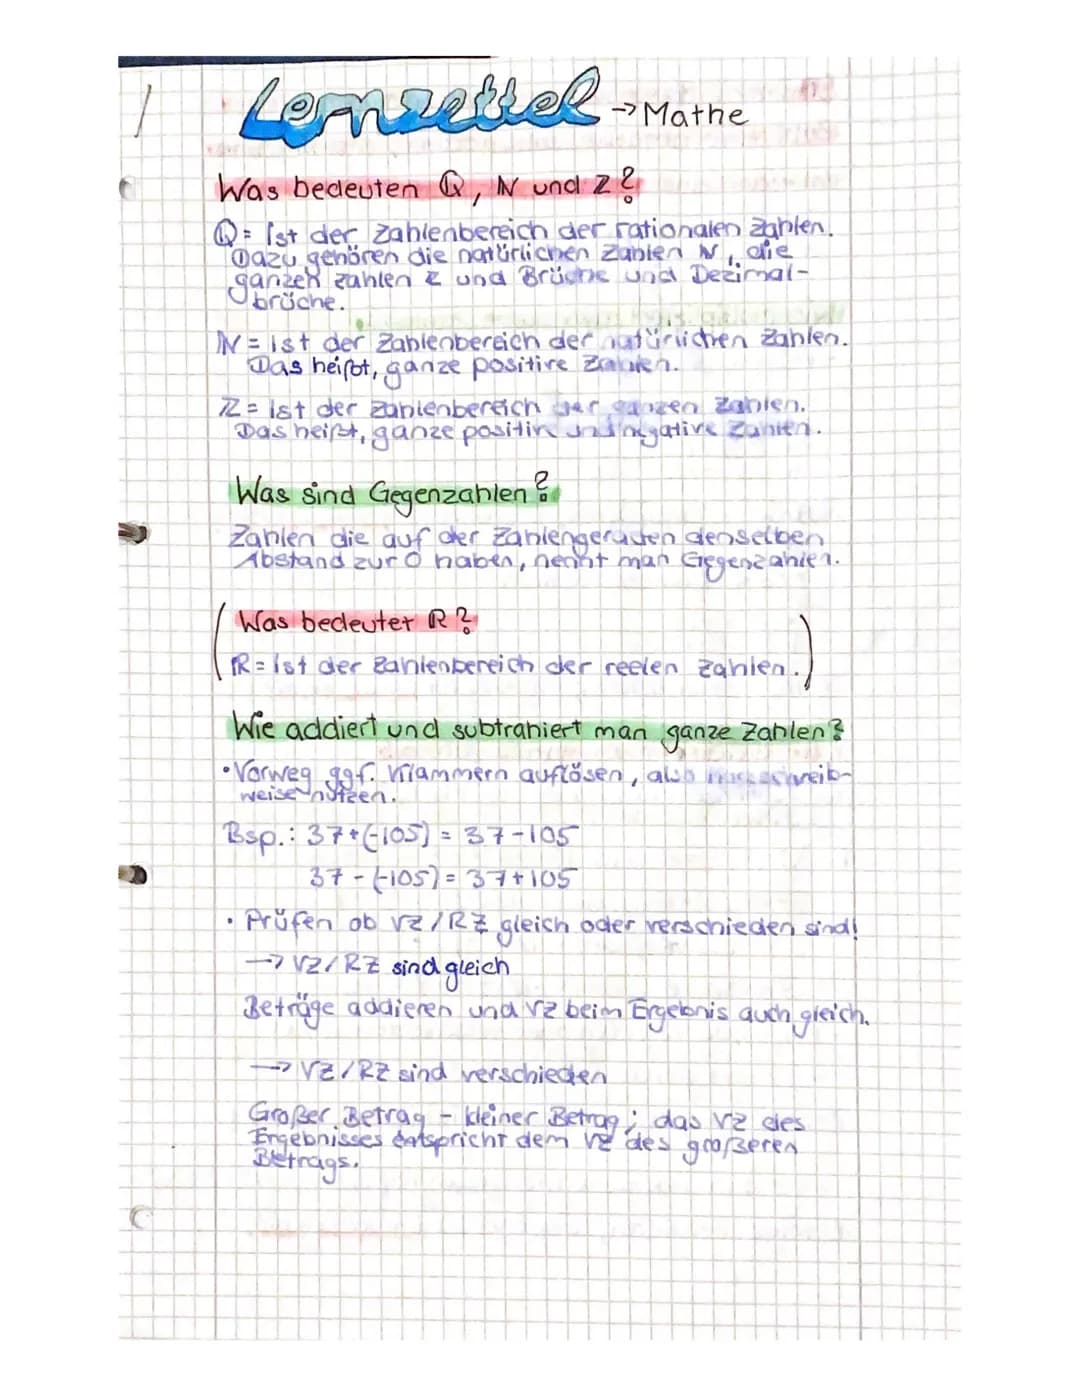 Lernzettel → Mathe
Was bedeuten ℚ, ℕ und ℤ?
ℚ = Ist der Zahlenbereich der rationalen Zahlen.
Dazu gehören die natürlichen Zahlen ℕ, die
ganzen zahlen ℤ und Brüche und Dezimal-
brüche.
ℕ = ist der Zahlenbereich der natürlichen Zahlen.
Das heißt, ganze positive Zahlen.
ℤ = ist der Zahlenbereich der ganzen Zahlen.
Das heißt, ganze positive und negative Zahlen.
Was sind Gegenzahlen?
Zahlen die auf der Zahlengeraden denselben
Abstand zur 0 haben, nennt man Gegenzahlen.
(Was bedeutet ℝ?
ℝ = ist der Zahlenbereich der reelen Zahlen.)
Wie addiert und subtrahiert man ganze Zahlen?
• Vorweg ggf. Klammern auflösen, also
weise nutzen.
Bsp.: 37+(-105) = 37-105
37-(-105) = 37+105
• Prüfen ob VZ/RZ gleich oder verschieden sind!
→ VZ/RZ sind gleich
Beträge addieren und VZ beim Ergebnis auch gleich.
→ VZ/RZ sind verschieden
Großer Betrag - kleiner Betrag; das VZ des
Ergebnisses entspricht dem VZ des großeren
Betrags.